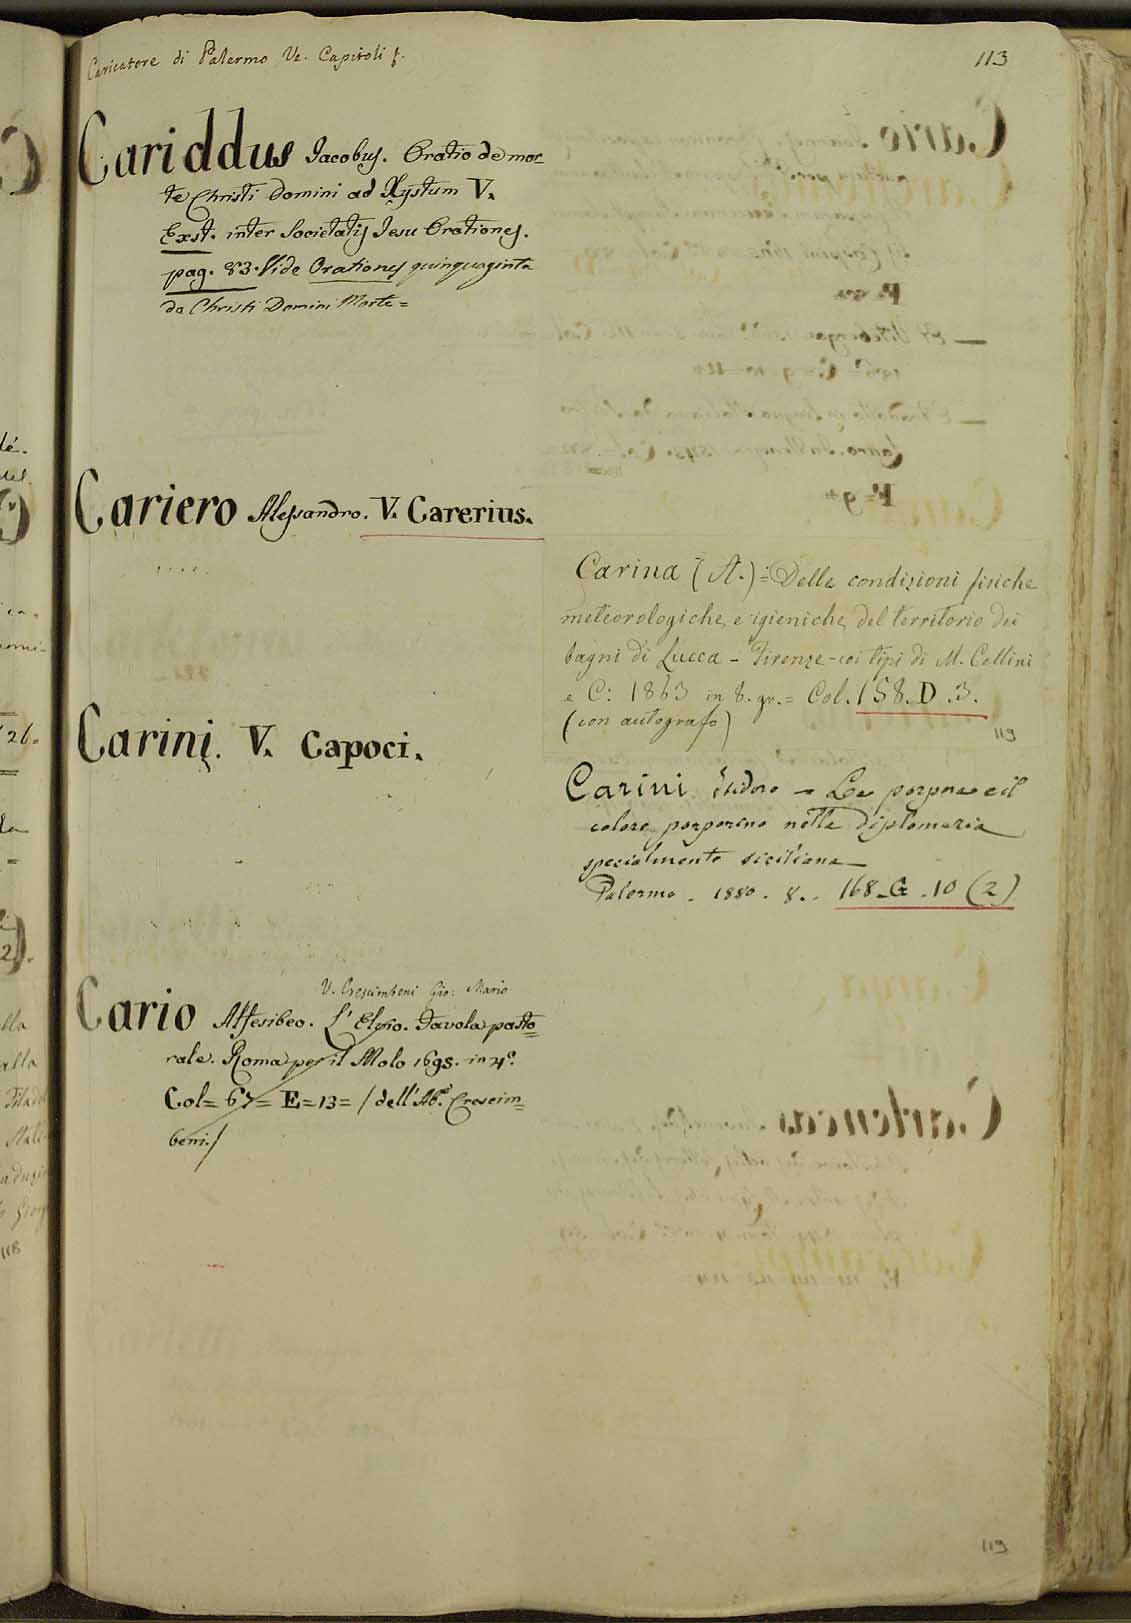 Caricatore di Palermo Ve. Capitoli f.
113
Cariddus Jacobus. Oratio de mor-
te Christi Domini ad Xystum V.
Exst. inter Societatis Jesu Orationes.
pag. 83. Vide Orationes quinquaginta
da Christi Domini Morte=
Cariero Alessandro. V. Carerius.
Carini. V. Capoci.
V. Crescimbeni Gio: Mario
Cario Alfesibeo. L'Elvio. Favola pasto=
rale. Roma per il Molo 1695. in 4°.
Col= 67= E=13= / dell'Ab.e Crescim=
beni./
Carina (A.)= Delle condizioni fisiche
meteorologiche e igieniche del territorio dei
bagni di Lucca - Firenze - coi tipi di M. Cellini
e C: 1863 in 8. gr.= Col. 158. D. 3.
(con autografo)
119
Carini Isidoro - La porpora e il
colore porporino nella diplomazia
specialmente siciliana
Palermo. 1880. 8.. 168-G-10 (2)
119